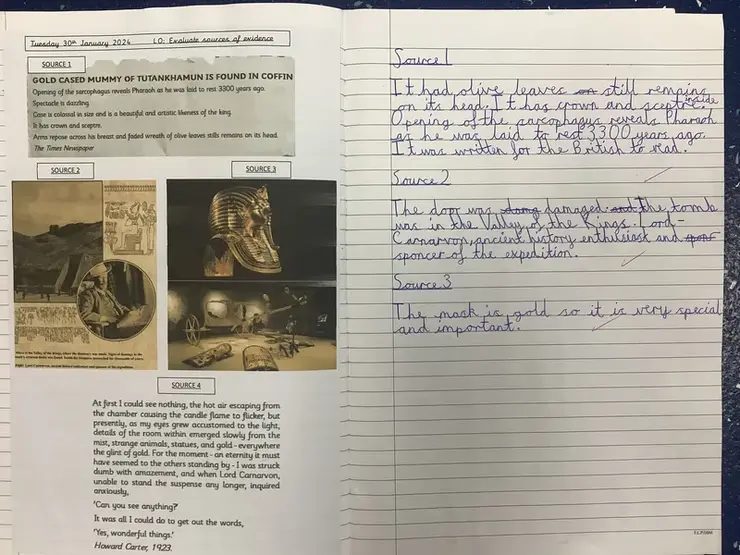 Tuesday 30th January 2024 LO: Evaluate sources of evidence
SOURCE 1
GOLD CASED MUMMY OF TUTANKHAMUN IS FOUND IN COFFIN
Opening of the sarcophagus reveals Pharaoh as he was laid to rest 3300 years ago.
Spectacle is dazzling.
Case is colossal in size and is a beautiful and artistic likeness of the king.
It has crown and sceptre.
Arms repose across his breast and faded wreath of olive leaves stills remains on its head.
The Times Newspaper
SOURCE 2
SOURCE 3
SOURCE 4
At first I could see nothing, the hot air escaping from
the chamber causing the candle flame to flicker, but
presently, as my eyes grew accustomed to the light,
details of the room within emerged slowly from the
mist, strange animals, statues, and gold - everywhere
the glint of gold. For the moment - an eternity it must
have seemed to the others standing by - I was struck
dumb with amazement, and when Lord Carnarvon,
unable to stand the suspense any longer, inquired
anxiously,
'Can you see anything?'
It was all I could do to get out the words,
'Yes, wonderful things.'
Howard Carter, 1923.
Source 1
It had olive leaves still remains
on its head. It has crown and sceptre. inside
Opening of the sarcophagus reveals Pharaoh
as he was laid to rest 3300 years ago.
It was written for the British to read.
Source 2
The door was damaged. The tomb
was in the Valley of the Kings. Lord
Carnarvon, ancient history enthusiast and
sponcer of the expedition.
Source 3
The mask is gold so it is very special
and important.